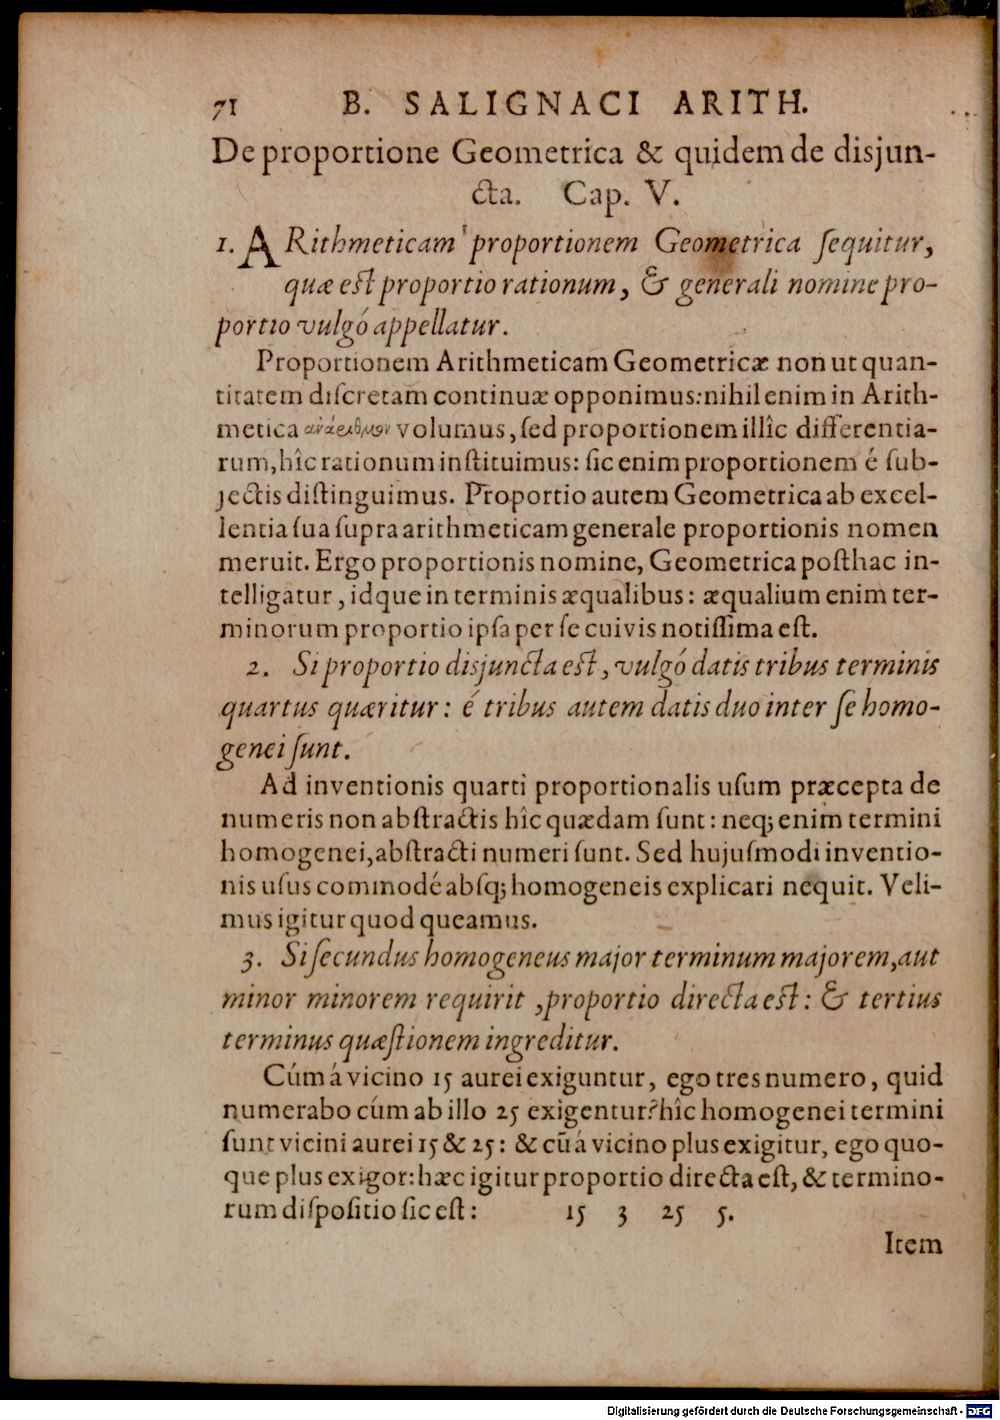 71 B. SALIGNACI ARITH.
De proportione Geometrica & quidem de disjun-
cta. Cap. V.
1. ARithmeticam proportionem Geometrica ſequitur,
quæ eſt proportio rationum, & generali nomine pro-
portio vulgó appellatur.
Proportionem Arithmeticam Geometricæ non ut quan-
titatem diſcretam continuæ opponimus: nihil enim in Arith-
metica volumus, ſed proportionem illîc differentia-
rum, hîc rationum inſtituimus: ſic enim proportionem é ſub-
jectis diſtinguimus. Proportio autem Geometrica ab excel-
lentia ſua ſupra arithmeticam generale proportionis nomen
meruit. Ergo proportionis nomine, Geometrica poſthac in-
telligatur, idque in terminis æqualibus: æqualium enim ter-
minorum proportio ipſa per ſe cuivis notiſſima eſt.
2. Si proportio disjuncta eſt, vulgó datis tribus terminis
quartus quæritur: é tribus autem datis duo inter ſe homo-
genei ſunt.
Ad inventionis quarti proportionalis uſum præcepta de
numeris non abſtractis hîc quædam ſunt: neq; enim termini
homogenei, abſtracti numeri ſunt. Sed hujuſmodi inventio-
nis uſus commodé abſq; homogeneis explicari nequit. Veli-
mus igitur quod queamus.
3. Si ſecundus homogeneus major terminum majorem, aut
minor minorem requirit, proportio directa eſt: & tertius
terminus quæſtionem ingreditur.
Cúm á vicino 15 aurei exiguntur, ego tres numero, quid
numerabo cúm ab illo 25 exigentur? hîc homogenei termini
ſunt vicini aurei 15 & 25: & cũ á vicino plus exigitur, ego quo-
que plus exigor: hæc igitur proportio directa eſt, & termino-
rum diſpoſitio ſic eſt: 15 3 25 5.
Item
Digitalisierung gefördert durch die Deutsche Forschungsgemeinschaft - DFG